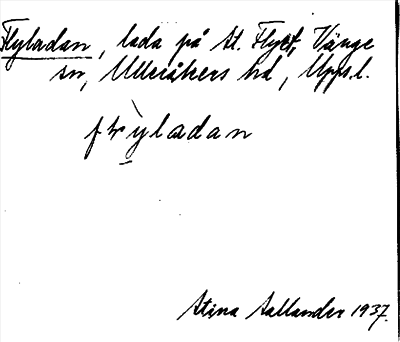 Flyladan, lada på St. Flyet, Vänge
sn, Ulleråkers hd, Upps.l.
flỳladan
Stina Sallander 1937.